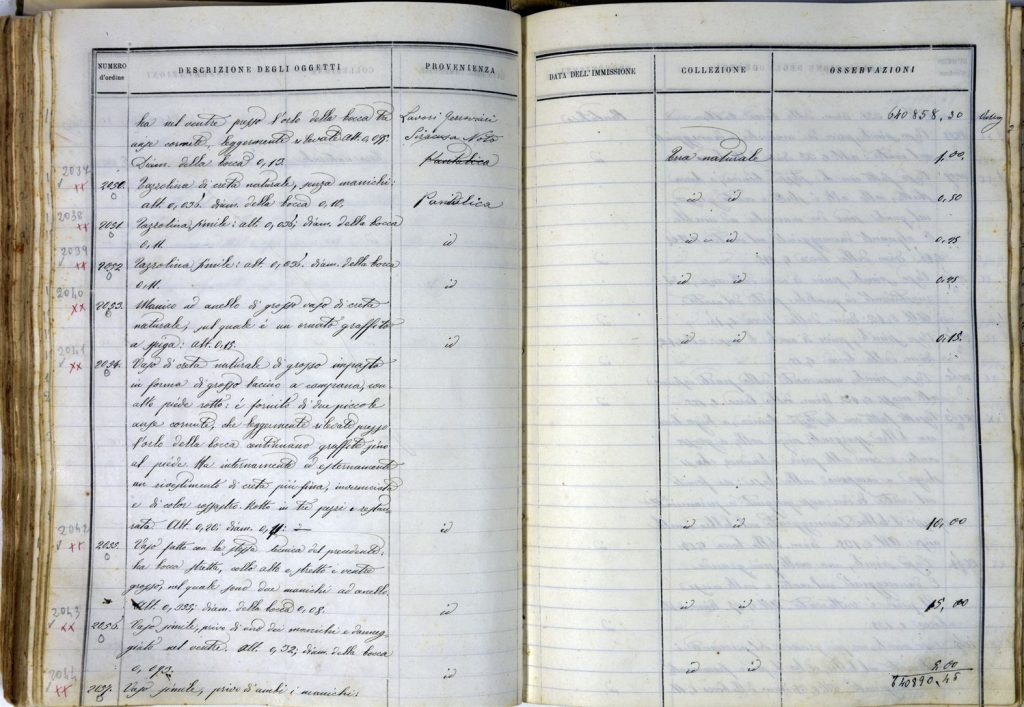 NUMERO d'ordine DESCRIZIONE DEGLI OGGETTI PROVENIENZA DATA DELL'IMMISSIONE COLLEZIONE OSSERVAZIONI
ha nel ventre presso l'orlo della bocca tre Lavori Ferroviari 640858,30
anse cornute, leggermente rilevate. Alt. 0,095. Siracusa Noto
Diam. della bocca 0,13. Pantalica Terra naturale 1,00
2037
2050. Tazzolina di creta naturale, senza manichi:
alt. 0,036; diam. della bocca 0,10. Pantalica id id 0,50
2038
2051. Tazzolina simile: alt. 0,036; diam. della bocca
0,11. id id id 0,25
2039
2052 Tazzolina simile: alt. 0,036. diam. della bocca
0,11. id id id 0,25
2040
2053. Manico ad anello di grosso vaso di creta
naturale, sul quale è un ornato graffito
a spiga: alt. 0,15. id id id 0,15
2041
2054. Vaso di creta naturale di grosso impasto
in forma di grosso bacino a campana, con
alto piede rotto: è fornito di due piccole
anse cornute, che leggermente rilevate presso
l'orlo della bocca continuano graffite fino
al piede. Ha internamente ed esternamente
un rivestimento di creta più fina,
e di color rossastro. Rotto in tre pezzi e restau-
rato. Alt. 0,20: diam. id id id 10,00
2042
2055. Vaso fatto con la stessa tecnica del precedente.
ha bocca stretta, collo alto e stretto e ventre
grosso, nel quale sono due manichi ad anello.
Alt. 0,325; diam. della bocca 0,08. id id id 15,00
2043
2056. Vaso simile, privo di uno dei manichi e danneg-
giato nel ventre. Alt. 0,32; diam. della bocca
0,093. id id id 5.00
2044
2057. Vaso simile, privo d'ambi i manichi: 640890.45